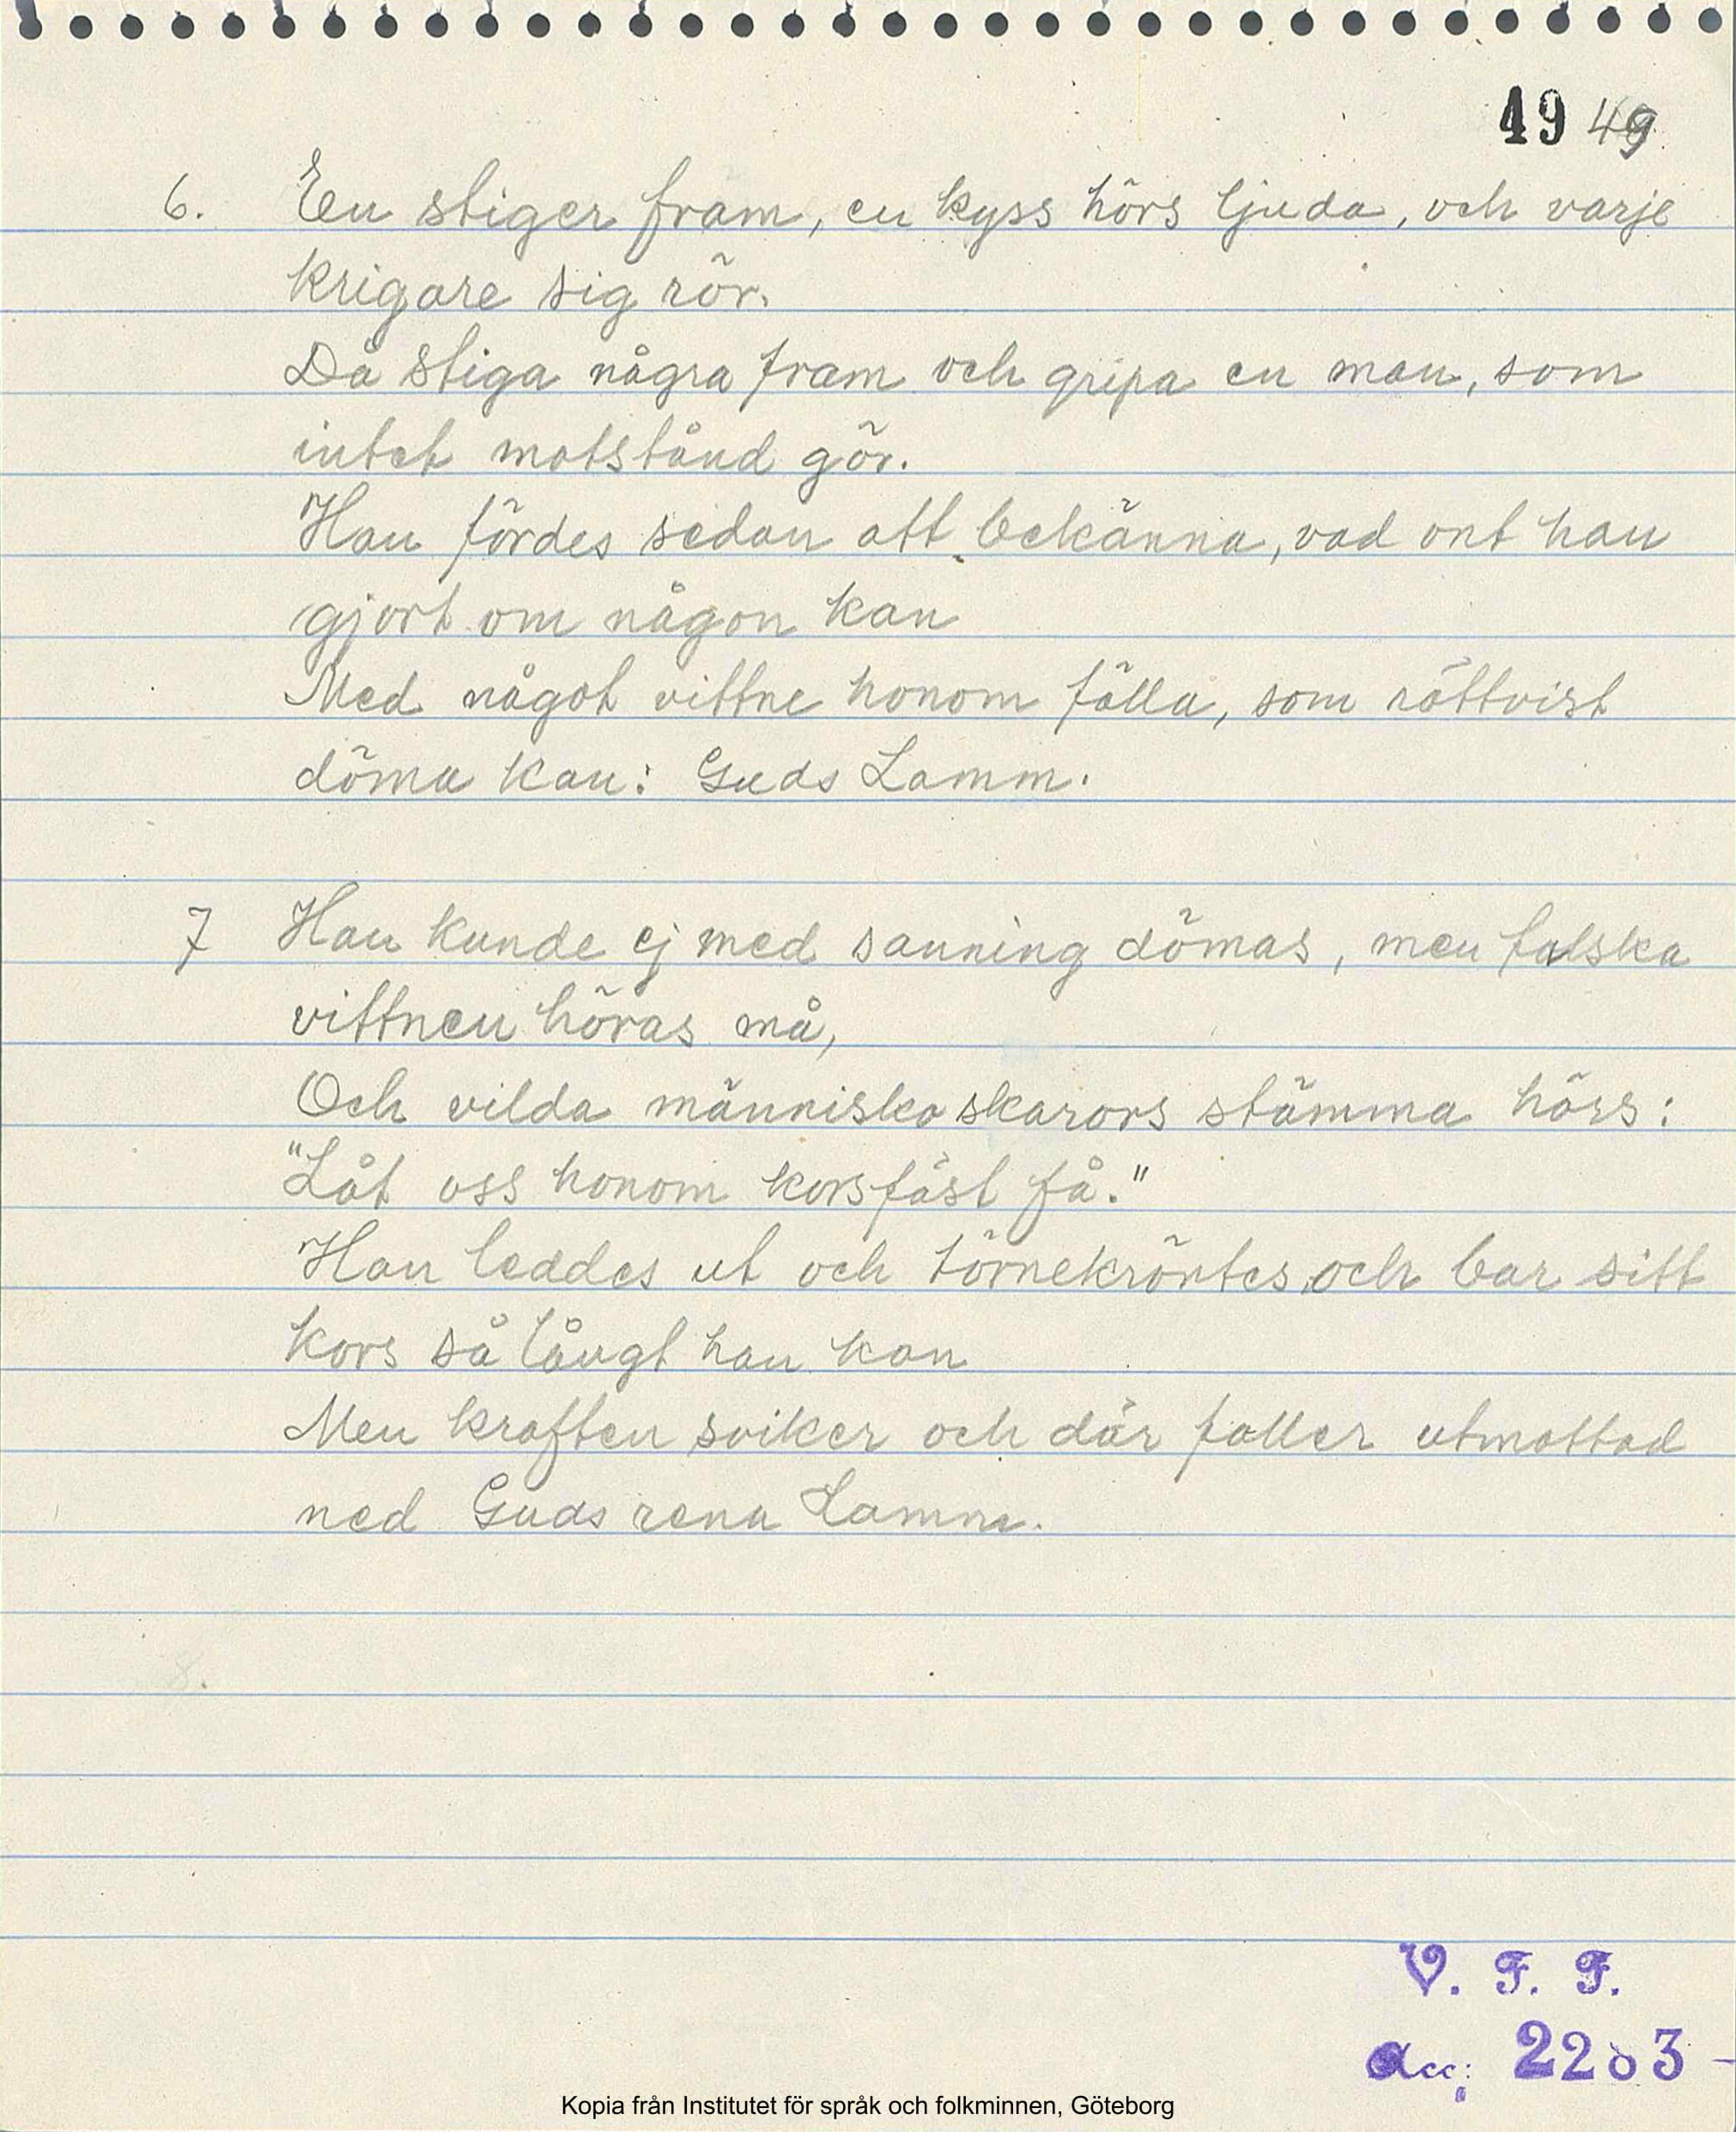 49 49
6. En stiger fram, en kyss hörs ljuda, och varje
krigare sig rör.
Då stiga några fram och gripa en man, som
intet motstånd gör.
Han fördes sedan att bekänna, vad ont han
gjort om någon kan
Med något vittne honom fälla, som rättvist
döma kan: Guds Lamm.
7 Han kunde ej med sanning dömas, men falska
vittnen höras må,
Och vilda människoskarors stämma hörs:
"Låt oss honom korsfäst få."
Han leddes ut och törnekröntes, och bar sitt
kors så långt han kan
Men kraften sviker och där faller utmattad
ned Guds rena Lamm.
8.
V. F. F.
Acc:
Kopia från Institutet för språk och folkminnen, Göteborg